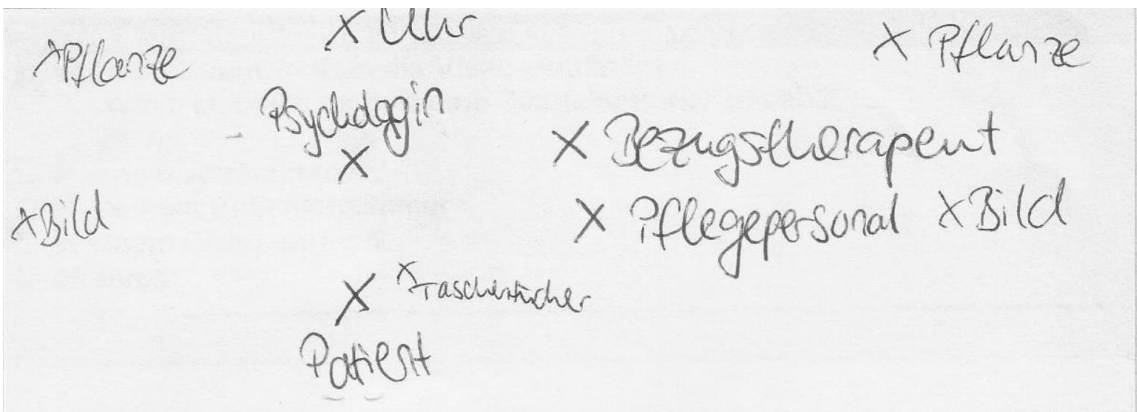 X Uhr
X Pflanze X Pflanze
Psychologin
X X Bezugstherapent
X Bild X Pflegepersonal X Bild
X X Taschentücher
Patient